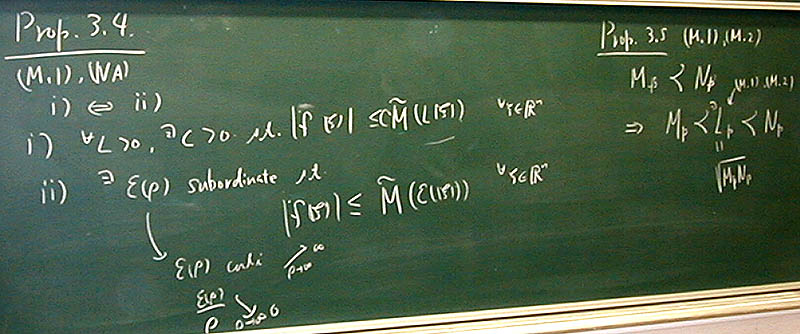 Prop. 3.4.
(M.1), (NA)
i) ⇔ ii)
i) ∀L>0, ∃C>0 s.t. |f(ξ)| ≤ C M̃(L|ξ|) ∀ξ∈ℝⁿ
ii) ∃ ε(ρ) subordinate s.t.
|f(ξ)| ≤ M̃(ε(|ξ|)) ∀ξ∈ℝⁿ
ε(ρ) conti ↗ ∞
ρ→∞
ε(ρ)/ρ ↘ 0
ρ→∞
Prop. 3.5 (M.1), (M.2)
M_p ≺ N_p
(M.1), (M.2)
⇒ M_p ≺ ∃L_p ≺ N_p
||
√(M_p N_p)